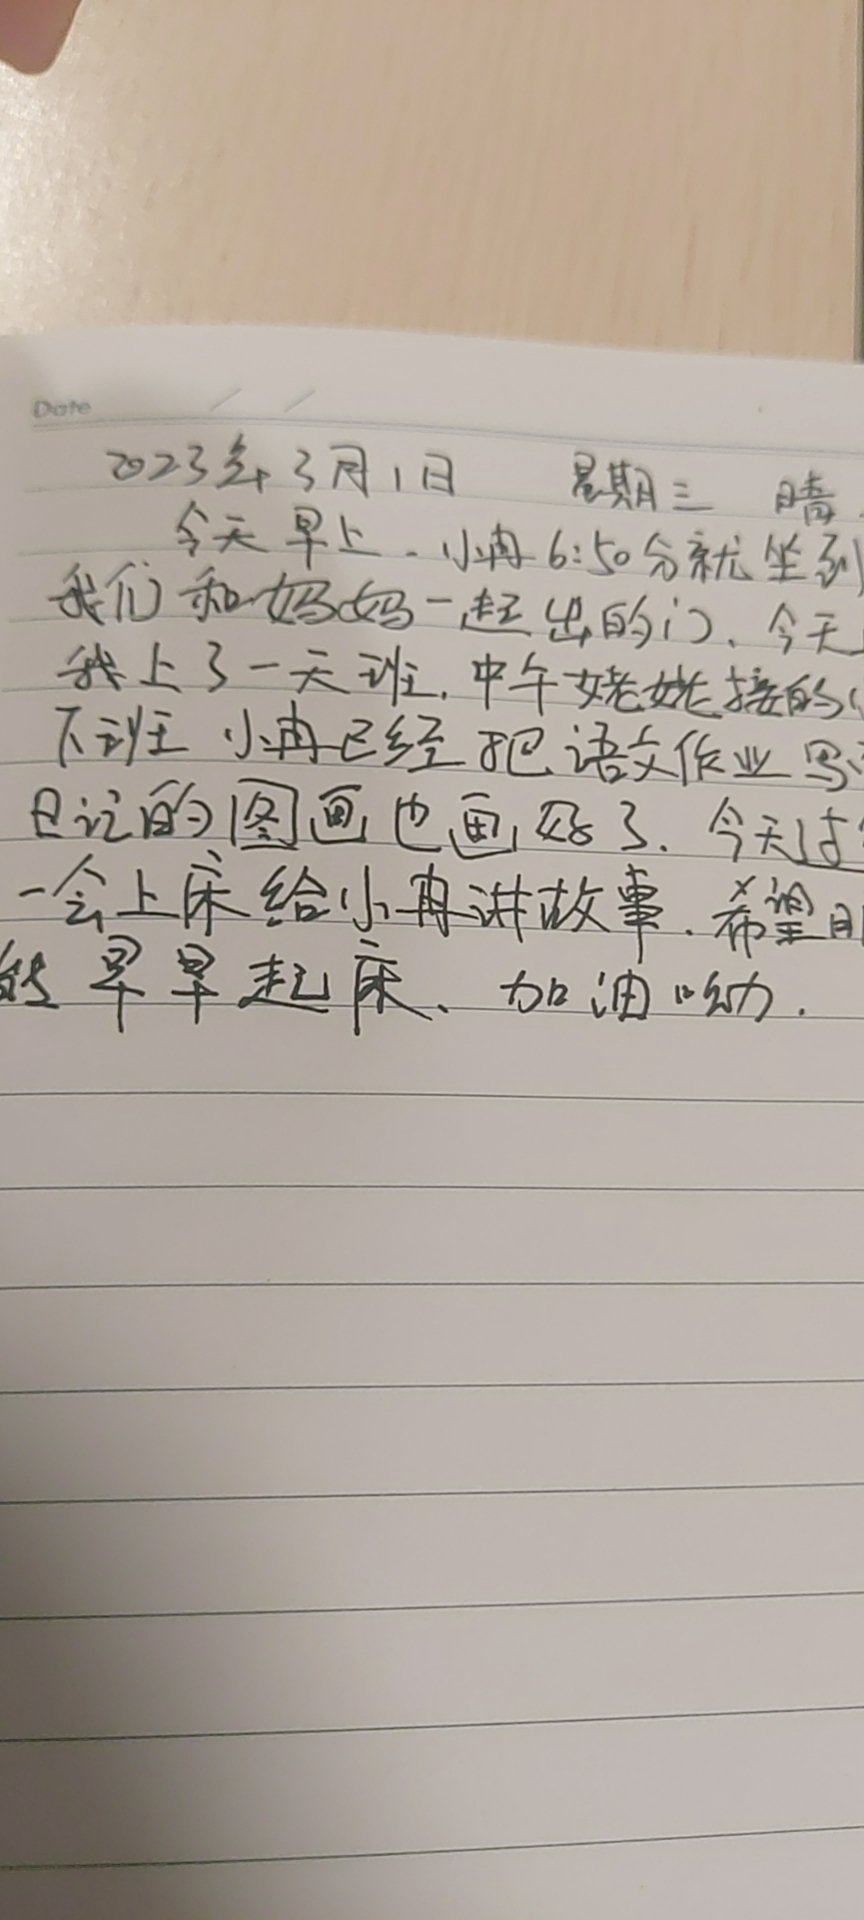 Date / /
2023年3月1日 星期三 晴
今天早上.小冉6:50分就坐到
我们和妈妈一起出的门、今天
我上了一天班.中午姥姥接的
下班 小冉已经把语文作业写
日记的图画也画好了.今天
一会上床给小冉讲故事.希望
早早起床、加油呦.